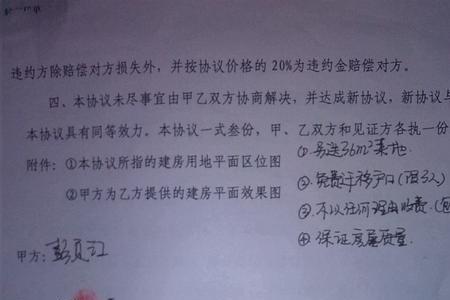 违约方除赔偿对方损失外，并按协议价格的 20%为违约金赔偿对方。
四、本协议未尽事宜由甲乙双方协商解决，并达成新协议，新协议与
本协议具有同等效力。本协议一式叁份，甲、乙双方和见证方各执一份
附件：①本协议所指的建房用地平面区位图
②甲方为乙方提供的建房平面效果图
① 36m²
② 免费迁移户口(限3人)
③ 不以任何理由收费.
④ 保证房屋质量.
甲方：